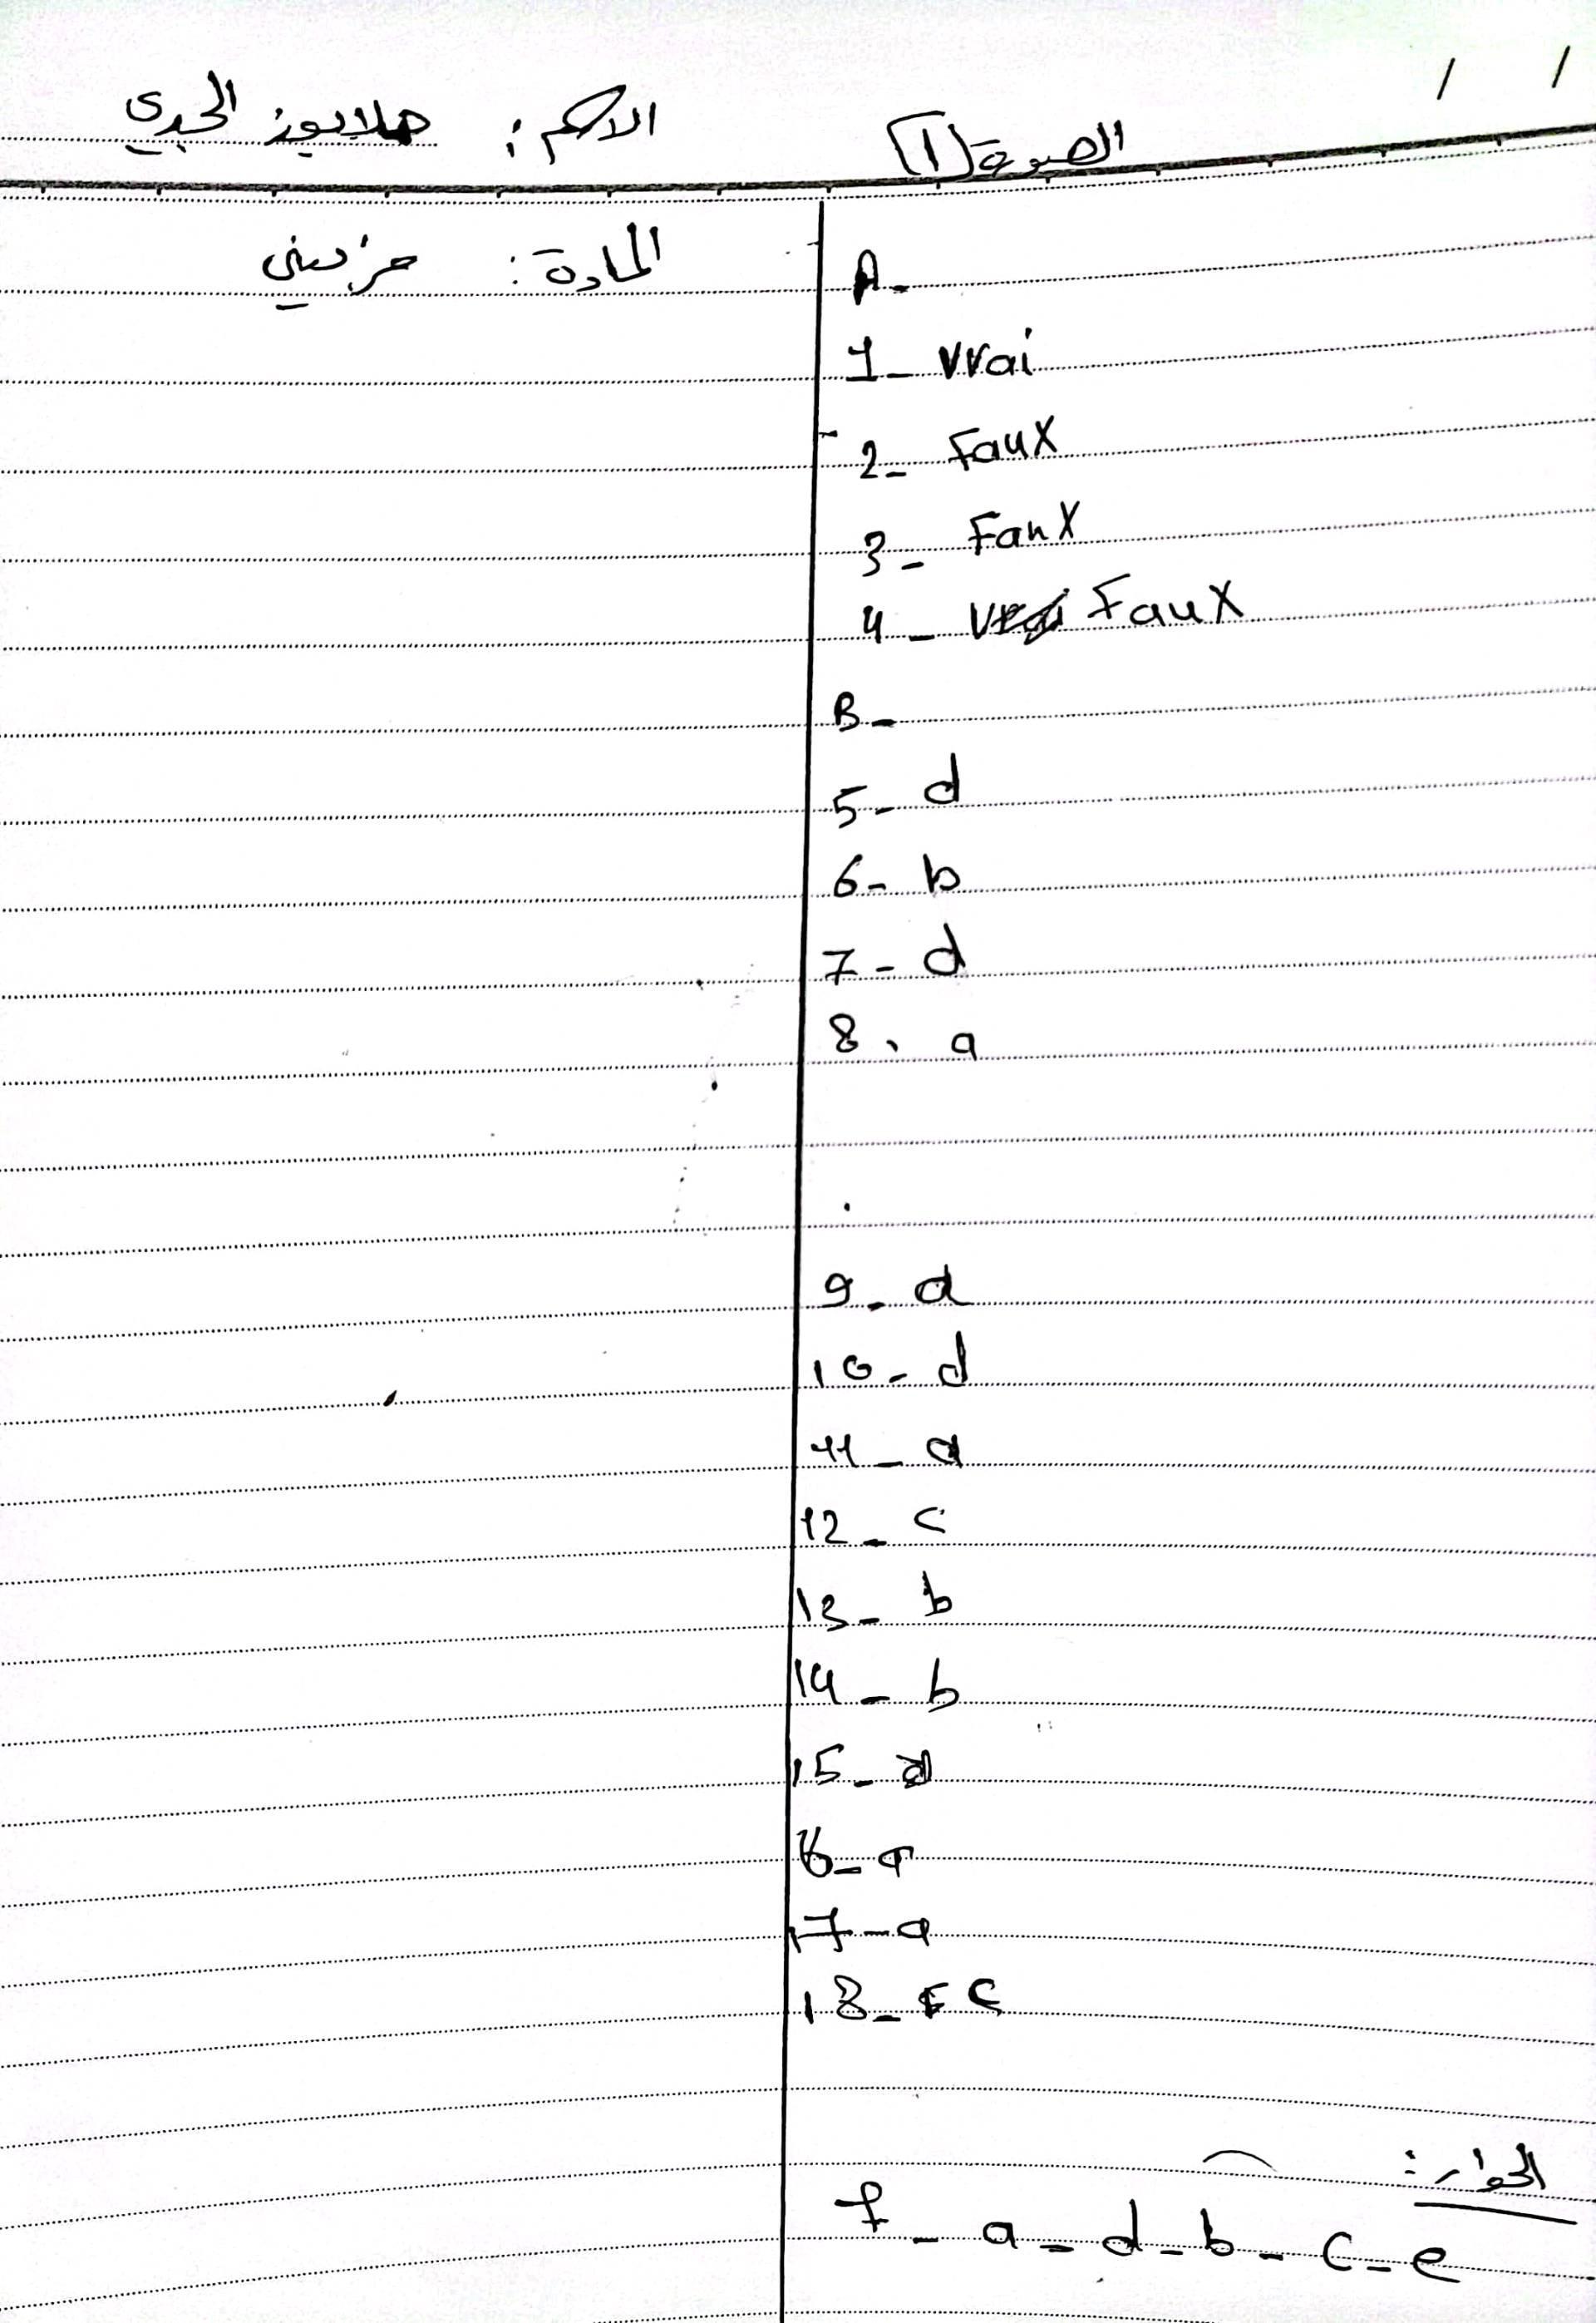 / /
الصورة (1)
الاسم : الجدي
المادة :
A-
1- vrai
2- Faux
3- Faux
4- Faux
B-
5- d
6- b
7- d
8- a
9- d
10- d
11- a
12- c
13- b
14- b
15-
16- a
17- a
18- c
الحوار :
f - a - d - b - c - e